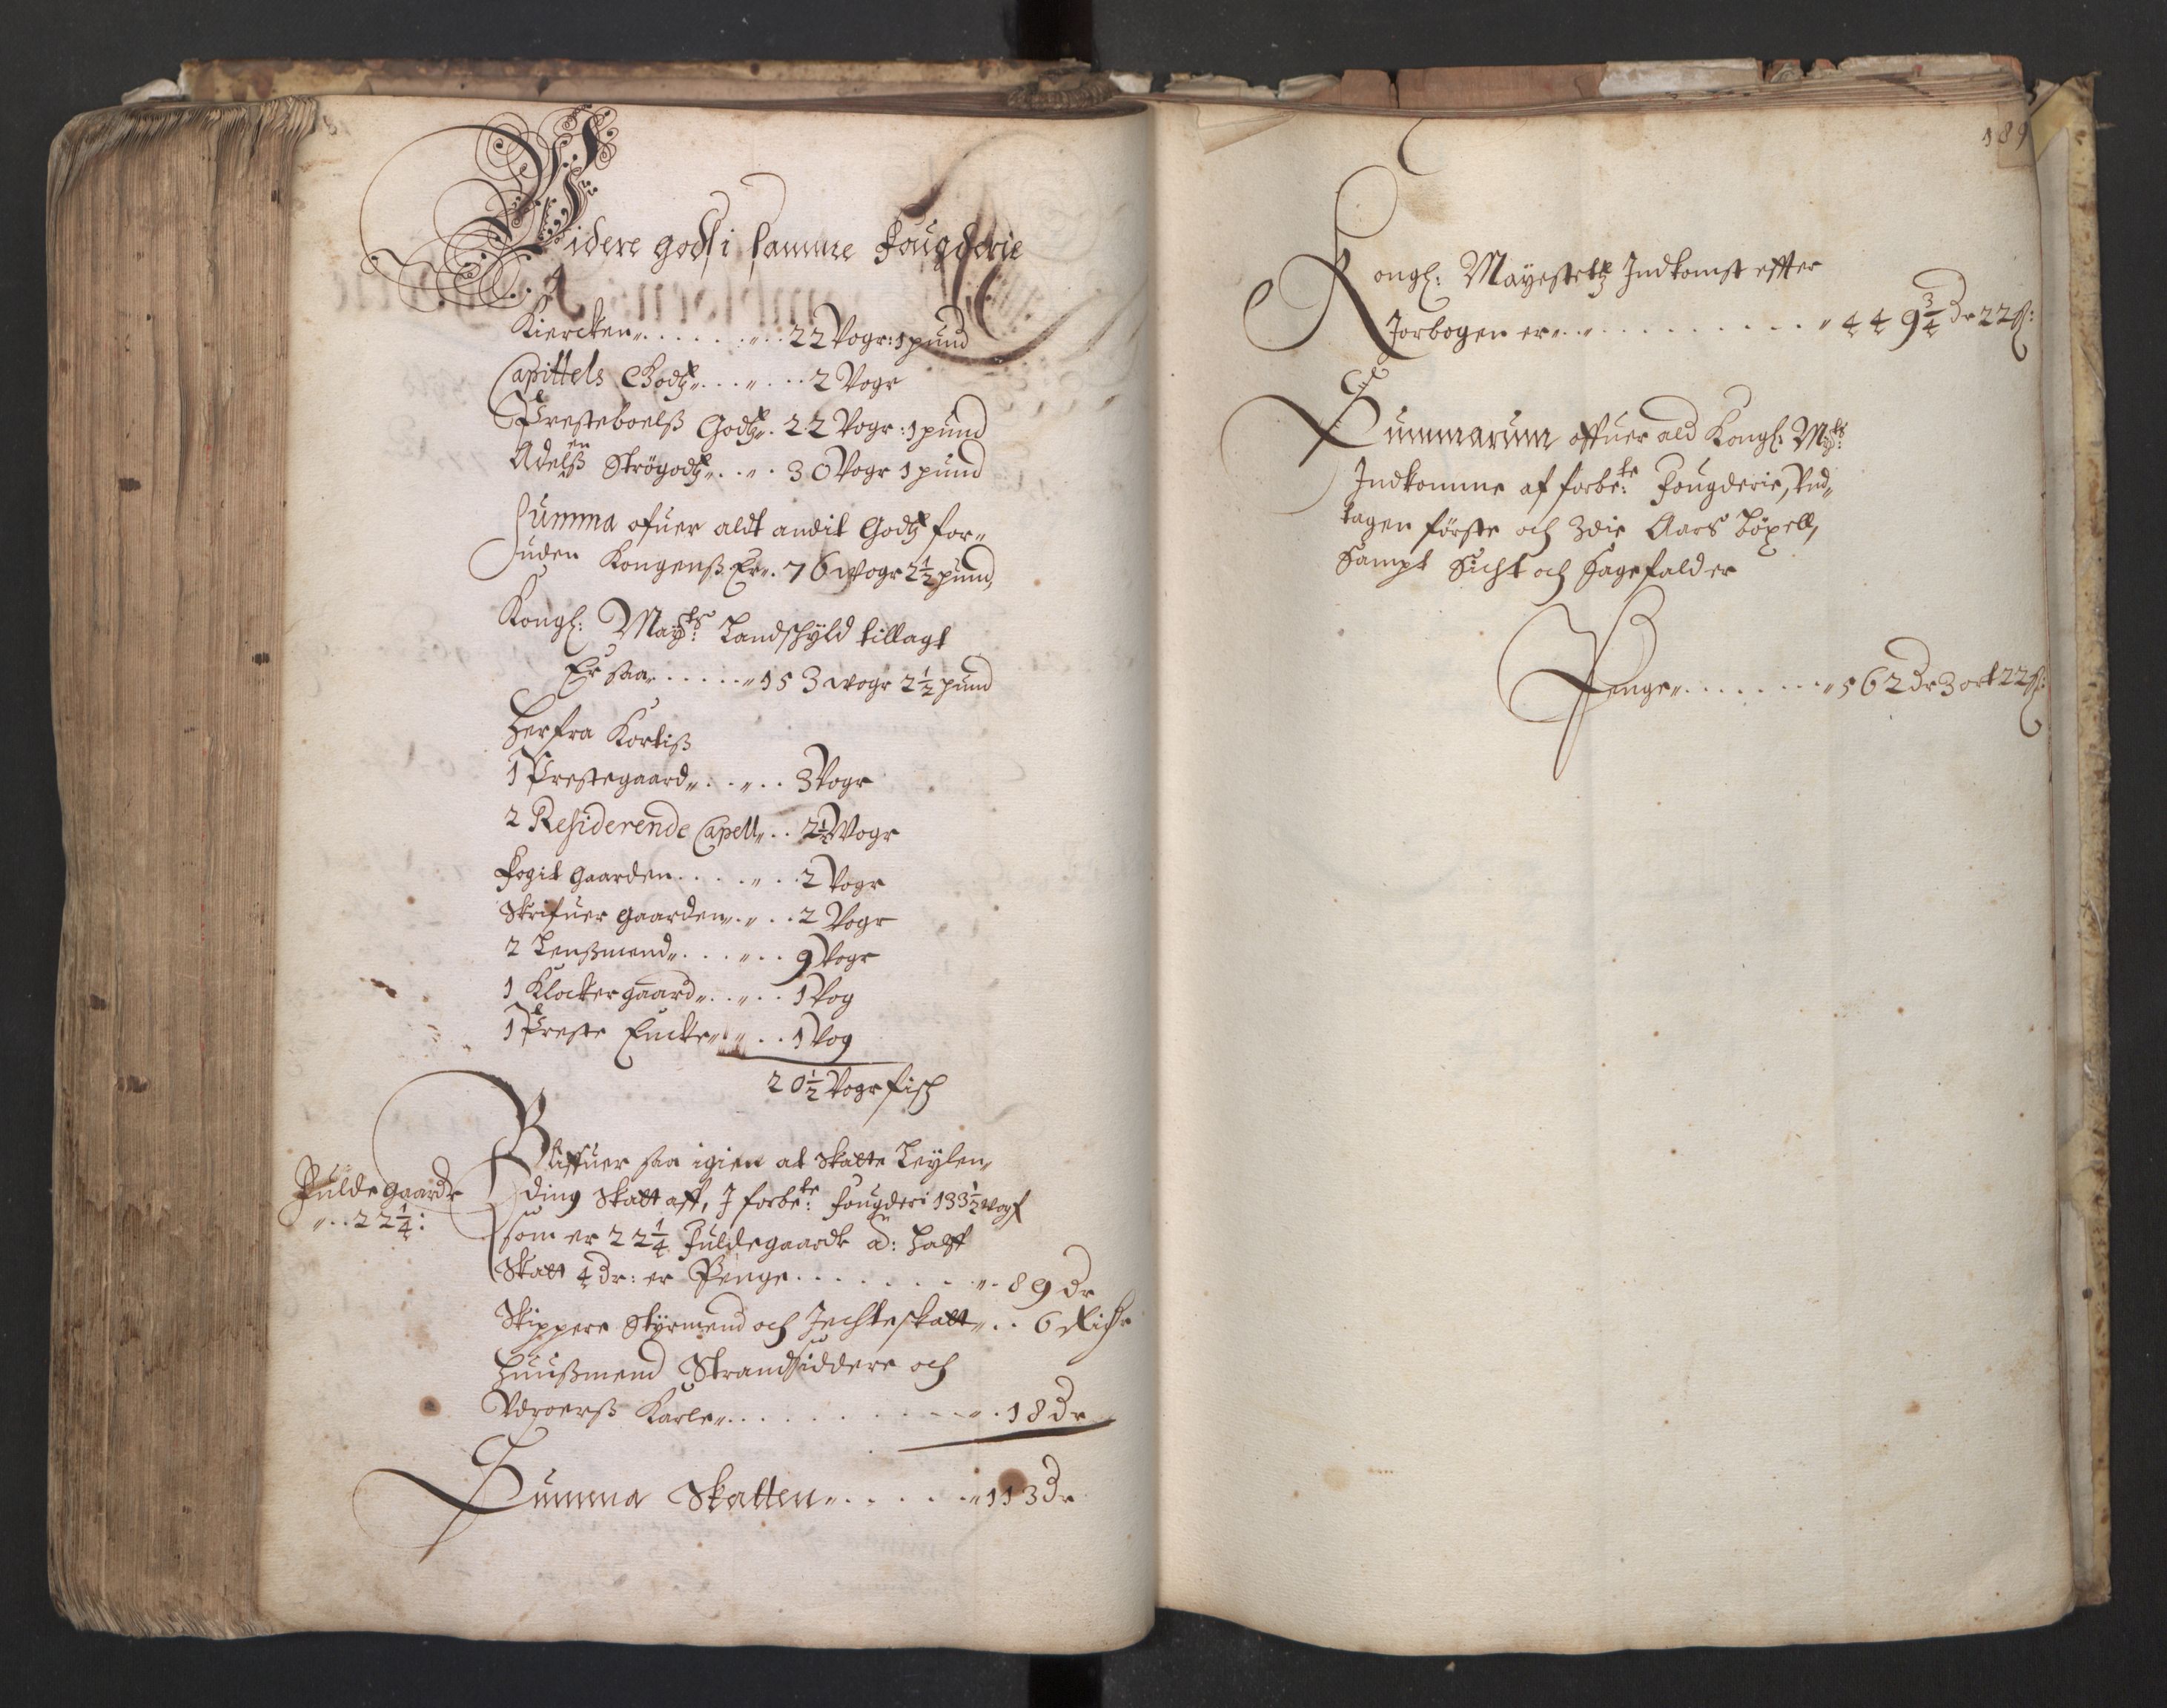 Videre godß i samme Fougderie
Kiercken„ . . . . . . „ . . 22 Vogr: 1 pund
Capittels Godtz„ . . . „ . . . 2 Vogr
Presteboelß Godtz„ . 22 Vogr: 1 pund
Adelß en Strögodtz„ . . „ . 30 Vogr 1 pund
Summa ofuer aldt andit Godtz for„
uden Kongenß Er„ . 76 wogr 2½ pund,
Kongl: Mayts: Landschyld tillagt
Er saa„ . . . . . „ 153 wogr 2½ pund
Herfra Kortiß
1 Prestegaard„ . . „ . . 3 Vogr
2 Residerende Capell„ . . 2½ Vogr
Fogit gaarden . . . . „ . . 2 Vogr
Skrifuer gaarden„ . „ . . 2 Vogr
2 Lenßmend„ . . . „ . . 9 Vogr
1 Klocker gaard„ . . „ . . 1 Vog
1 Preste Encke„ . „ . . 1 Vog
20½ Vogr fisch
Bliffuer saa igien at Skatte Leylen„
ding Skatt aff, I forbete: Fougderi 133½ wogr
Fulde gaarde
„ . . 22¼:
som er 22¼ Fuldegaarde a: halff
Skatt 4 Dr: er Penge . . . . . . . . „ . 89 Dr
Skippere Styrmend och Jechteskatt„ . . 6 Richr
Huußmend Strandsiddere och
Vdroerß Karle„ . . . . . . . . . „ . 18 Dr
Summa Skatten„ . . . . . „ 113 Dr
189
Kongl: Mayestetz Indkomst effter
Jorbogen er„ . . „ . . . . . . . . . „ 449¾ Dr 22 ß:
Summarum offuer ald Kongl: Mayts:
Indkomme af forbete: Fougderie, Vnd„
tagen förste och 3die Aars böxell,
Sampt Sicht och Sagefald er
Penge„ . . . . . . . „ 562 Dr 3 ort 22 ß: